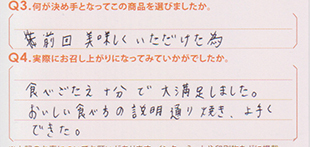 Q3.何が決め手となってこの商品を選びましたか。
前回 美味しくいただけた為
Q4.実際にお召し上がりになってみていかがでしたか。
食べごたえ十分で大満足しました。
おいしい食べ方の説明通り焼き、上手く
できた。